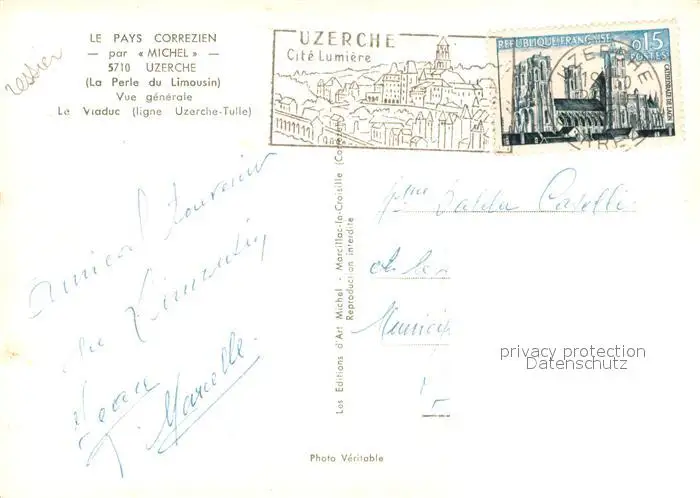 LE PAYS CORREZIEN
— par « MICHEL » —
5710 UZERCHE
(La Perle du Limousin)
Vue générale
Le Viaduc (ligne Uzerche-Tulle)
UZERCHE
Cité Lumière
REPUBLIQUE FRANÇAISE
0,15
POSTES
CATHEDRALE DE LAON
UZERCHE
Amical souvenir
du Limousin
Jean
Marcelle.
Les Editions d'Art Michel - Marcillac-la-Croisille (Corrèze)
Reproduction interdite
Photo Véritable
privacy protection
Datenschutz